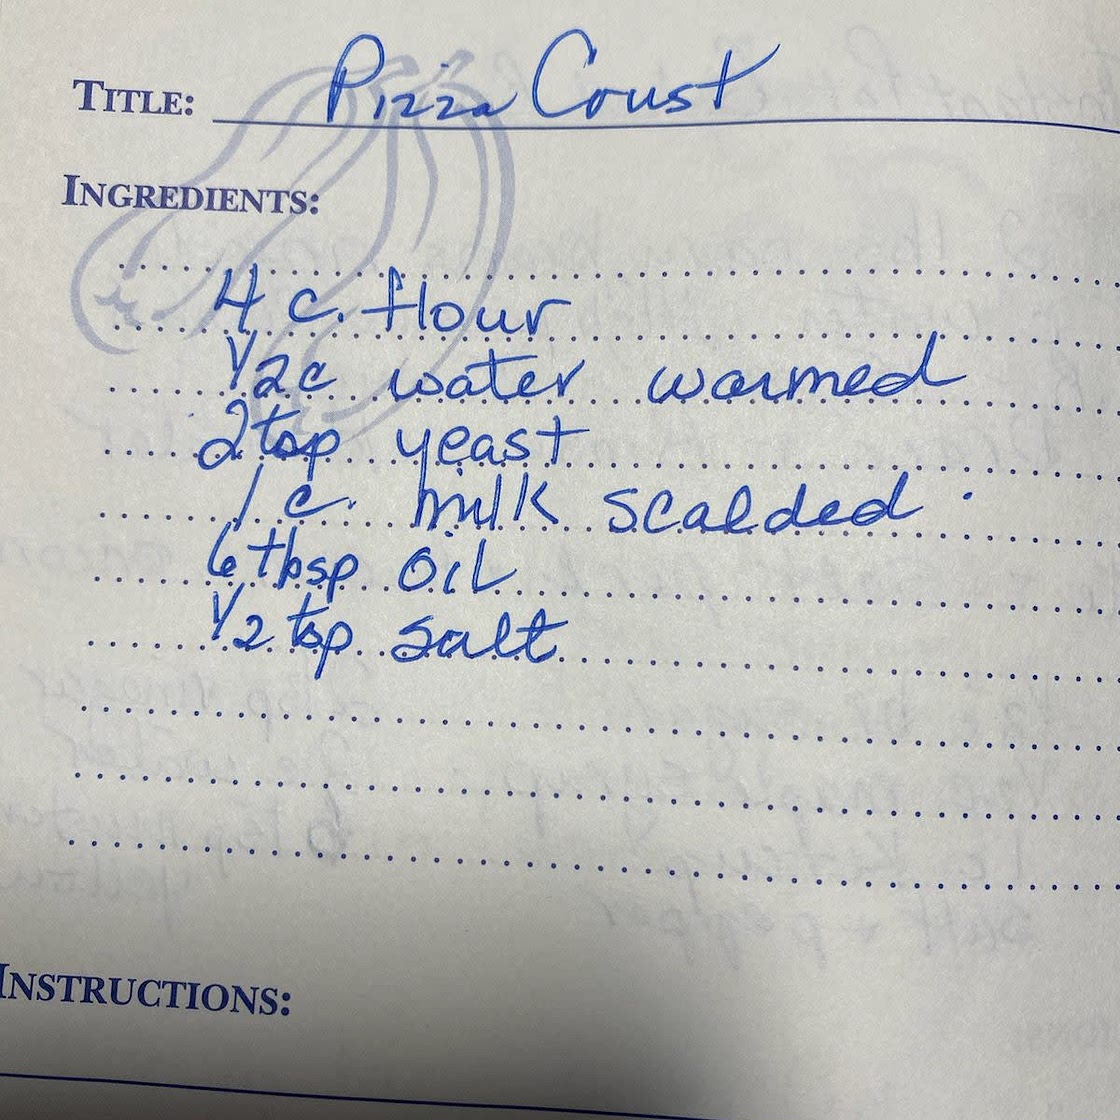 TITLE: Pizza Crust
INGREDIENTS:
4 c. flour
1/2 c water warmed
2 tsp yeast
1 c. milk scalded
6 tbsp oil
1/2 tsp salt
INSTRUCTIONS: